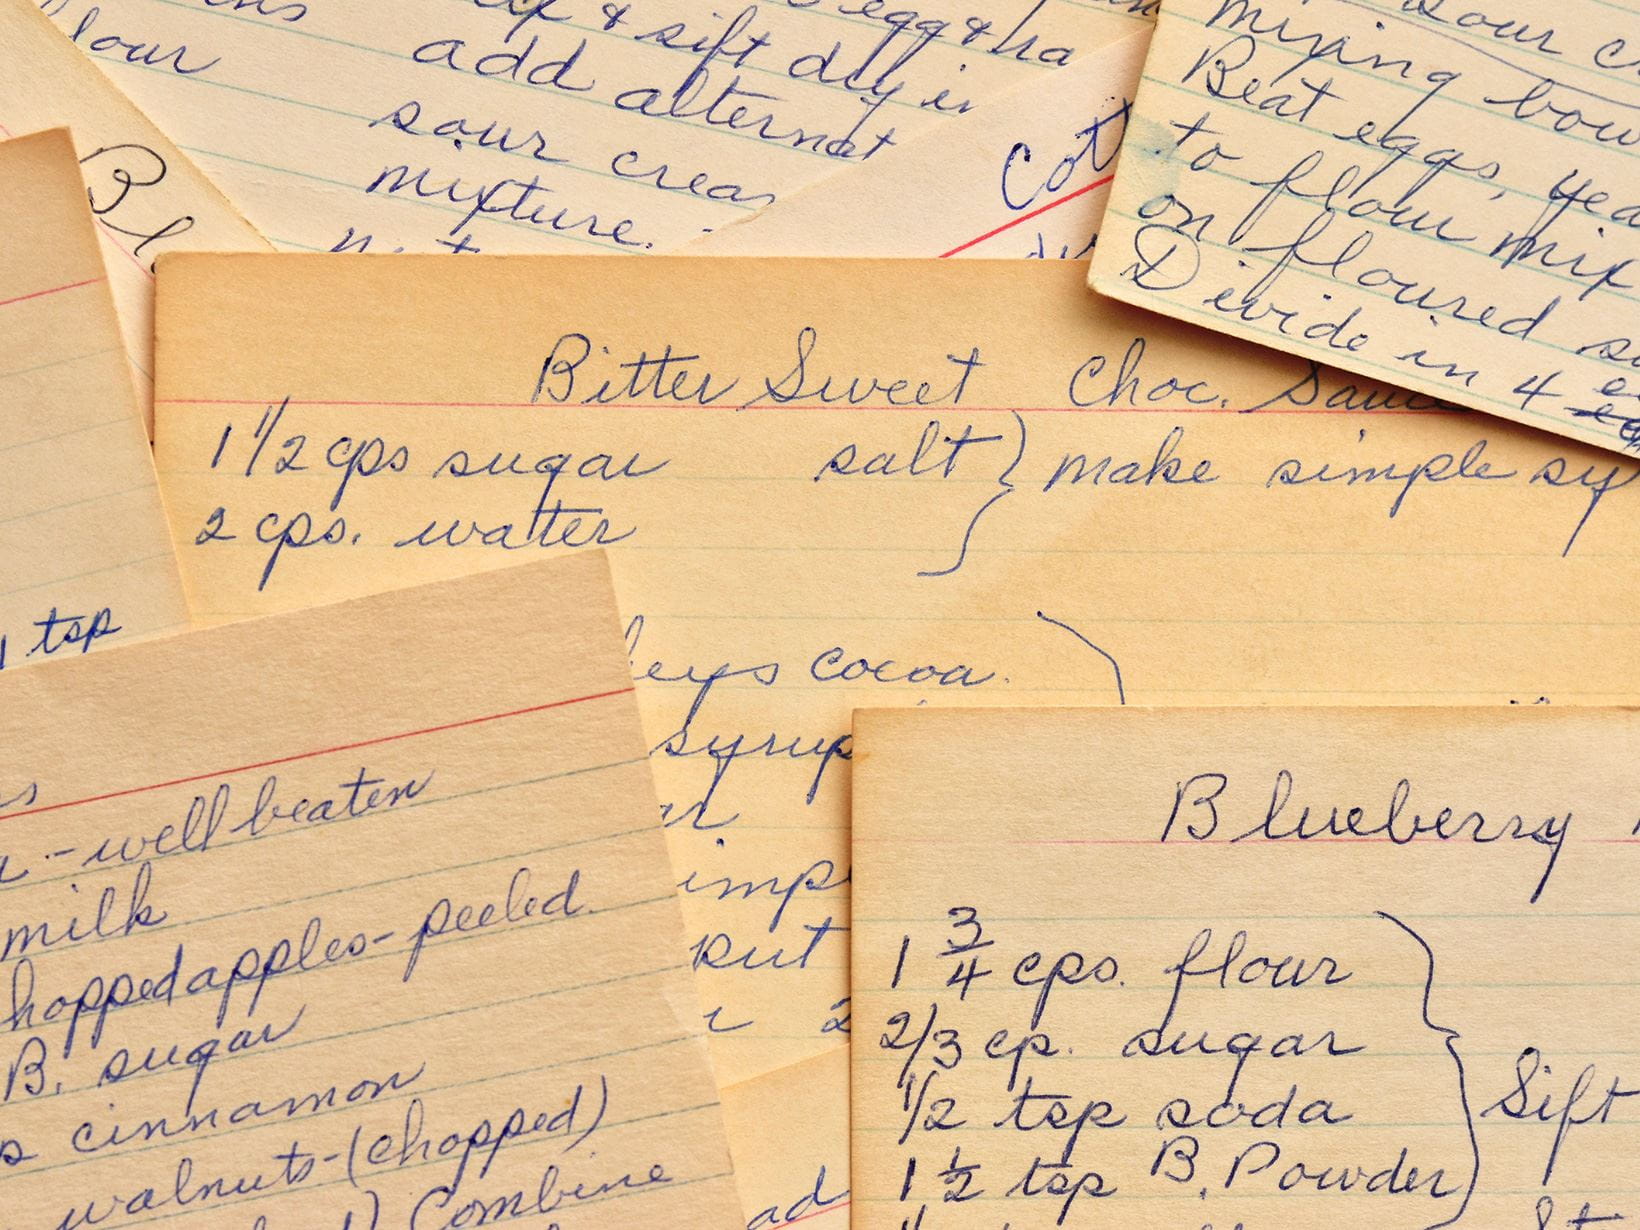 lour
& sift dry in
add alternat
sour crea
mixture.
egg &
Cot
sour c
mixing bow
Beat eggs, yea
to flour mix
on floured su
Divide in 4
Bl
1 tsp
Bitter Sweet Choc. Sauce
1 1/2 cps sugar salt } make simple sy
2 cps. water
eys cocoa.
syrup
imp
put
2
ad
- well beaten
milk
hopped apples - peeled
B. sugar
cinnamon
walnuts - (chopped)
) Combine
Blueberry
1 3/4 cps. flour
2/3 cp. sugar
1/2 tsp soda
1 1/2 tsp B. Powder
Sift